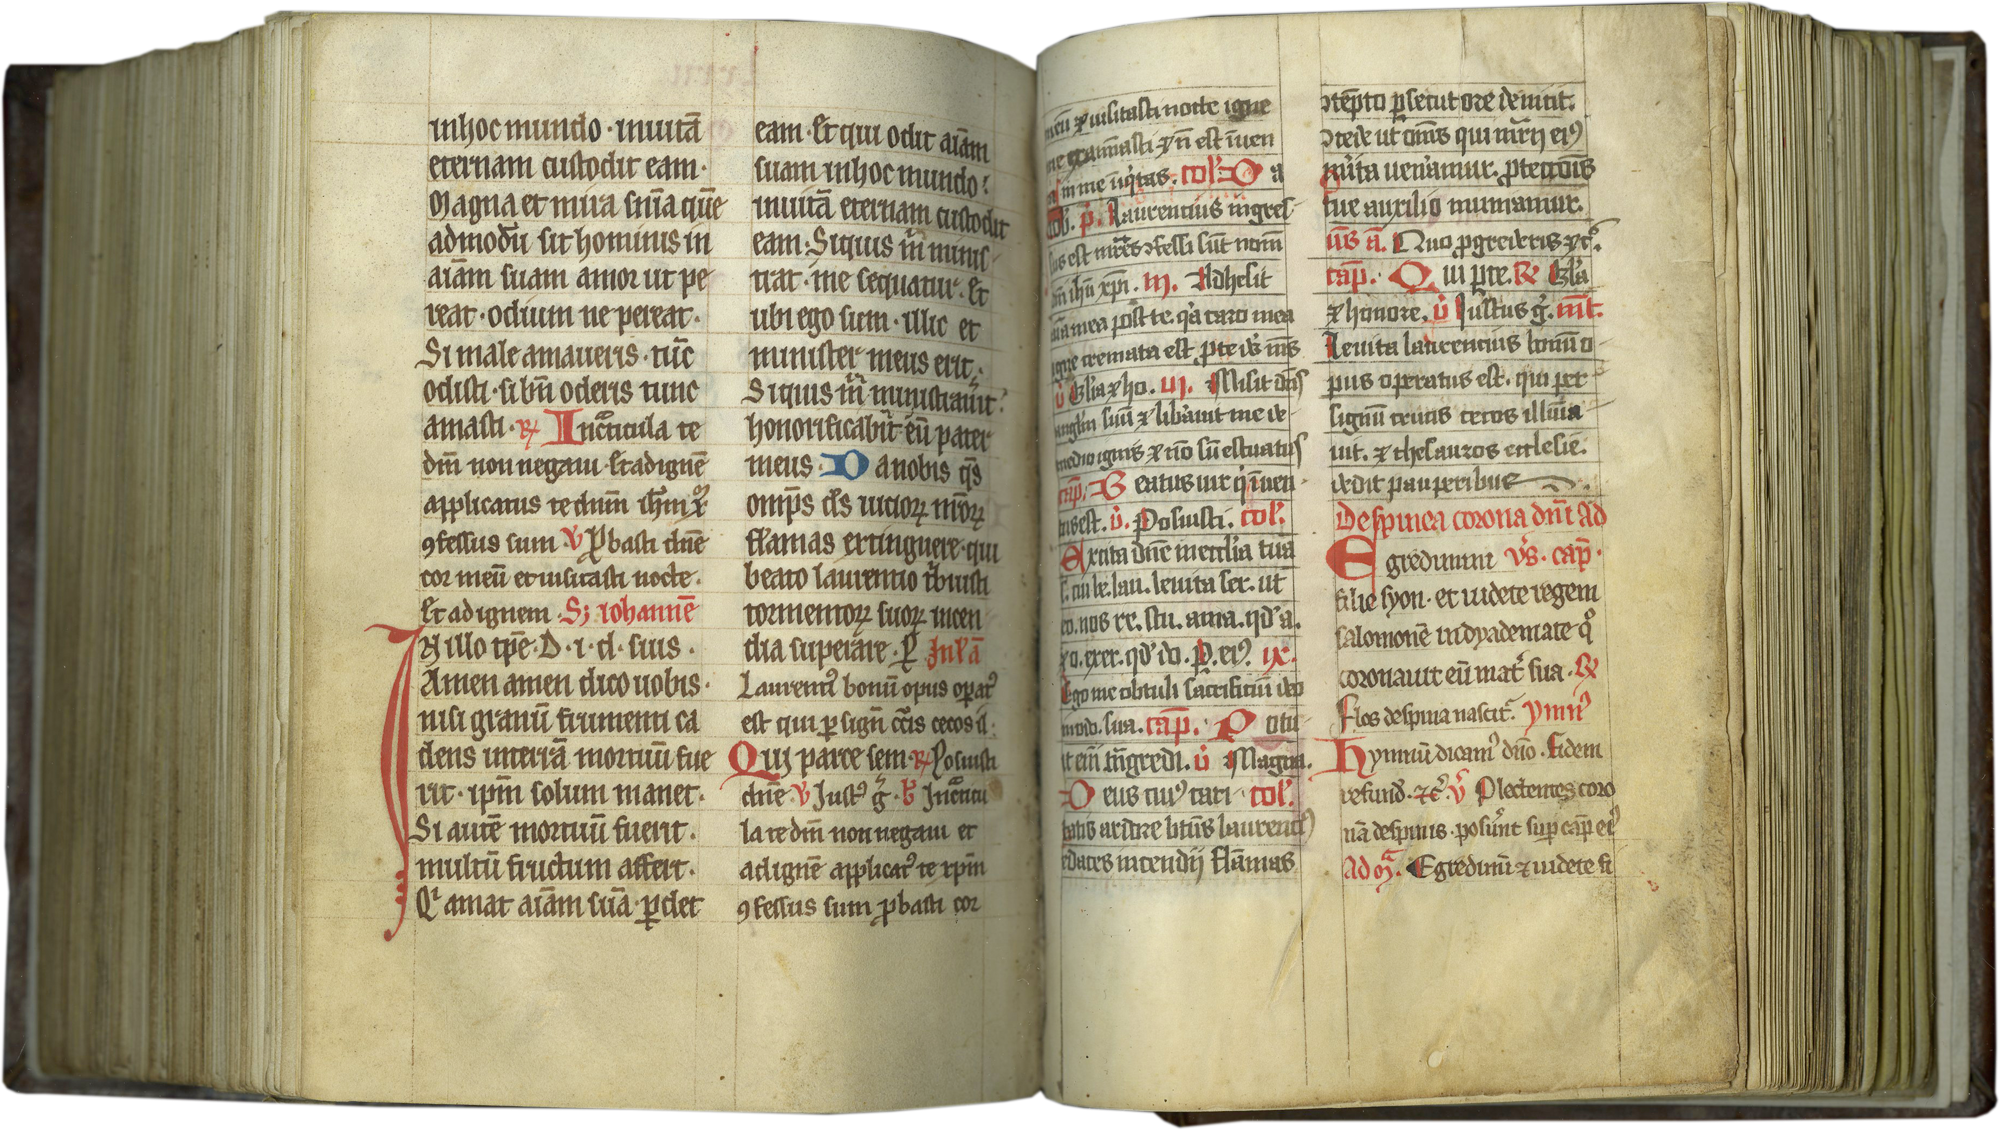 inhoc mundo · inuitā
eternam custodit eam ·
Magna et mira snīa quē
admodū sit hominis in
aīam suam amor ut pe
reat · odium ne pereat ·
Si male amaueris · tūc
odisti · si bn̄ oderis tunc
amasti · ℞ Incͣticula te
dm̄ non negaui · Et ad ignē
applicatus te dnm̄ ihm̄ xp̄
ꝯfessus sum ℣ ꝓbasti dn̄e
cor meū et uisitasti nocte ·
Et ad ignem · Sꝫ iohannē
In illo tp̄e · D · i · d · suis ·
Amen amen dico uobis ·
nisi granū frumenti ca
dens interrā mortuū fue
rit · ipm̄ solum manet ·
Si autē mortuū fuerit ·
multū fructum affert ·
Qͥ amat aīam suā · ꝑdet
eam · Et qui odit aīam
suam inhoc mundo ·
inuitā eternam custodit
eam · Siquis m̄ minis
trat · me sequatur · Et
ubi ego sum · illic et
minister meus erit ·
Siquis m̄ ministrauīt ·
honorificabit̄ eū pater
meus · Da nobis qs̄
omp̄s ds̄ uicioꝝ nr̄oꝝ
flamas extinguere · qui
beato laurentio tͥbuisti
tormentoꝝ suoꝝ incen
dia superare · ꝑ In lā
Laurentꝰ bonū opus oꝑatꝰ
est qui ꝑ sign̄ cͨis cecos il ·
Qui parce sem · ℞ Posuisti
dn̄e ℣ Justꝰ ḡ · ℞ Incͣticu
la te dm̄ non negaui et
ad ignē applicatꝰ te xpm̄
ꝯfessus sum ꝓbasti cor
meū ⁊ uisitasti nocte igne
me examinasti ⁊ n̄ est īuen
ta in me iīqͥtas. col. Da
nob. p. Laurencius ingres
sus est mr̄ ꝯfessus est nom̄
dn̄i ihū xp̄i. ııı. Adhesit
aīa mea post te. qͥa caro mea
igne cremata est ꝑ te ds̄ ms̄
℣ Gl̄ia ⁊ ho. ııı. Misit dn̄s
anglm̄ suū ⁊ lib̄auit me de
medio ignis ⁊ nō sū estuatus
cap̄. Beatus uir qͥ inuen
tus est. ℣. Posuisti. col.
Excita dn̄e in eccl̄ia tua
s. cui be. lau. leuita ser. ut
eo. nos re. stu. ama. qd̓ a.
⁊ o. exer. qd̓ do. ꝑ. eiꝰ ıx.
Ego me obtuli sacrificiū deo
in odo. sua. cap̄. Potu
it eni t̄nsgredi. ℣ Magna.
Deus cuiꝰ cari col.
tatis ardore btūs laurenciꝰ
edaces incendij flāmas
ꝯtēpto ꝑsecutore deuicit.
ꝯcede ut om̄s qui mr̄ij eiꝰ
mīta uen̄amur. ꝓtectiois
tue auxilio muniamur.
ūs̄ ā. Quo ꝓgrederis ⁊cͦ.
cap̄. Qui ꝑte. ℞ Gl̄a
⁊ honore. ℣ Justus g̓. mt̄.
Leuita laurencius bonū o
pus operatus est. qui per
signū crucis cecos illuīa
uit. ⁊ thesauros ecclesie.
dedit pauperibus
De spinea corona dn̄i Ad
Egredimini vs̄. cap̄.
filie syon · et uidete regem
salomonē in dyademate qͦ
coronauit eū mat̄ sua · ℞
Flos de spina nascit̄. ymnꝰ
Hymnū dicamꝰ dn̄o · fidem
refund̄. ⁊c̄ ℣ Plectentes coro
nā de spinis · posuīnt suꝑ cap̄ eiꝰ
Ad m̄. Egredimī ⁊ uidete fi